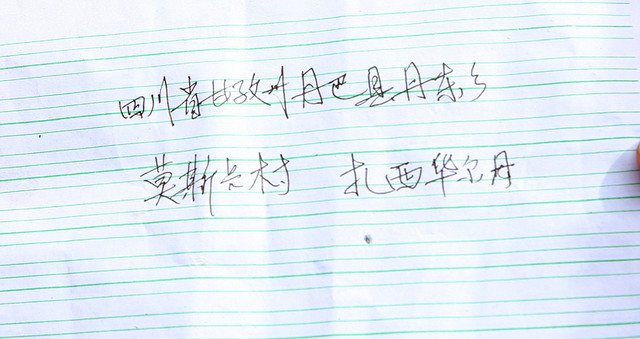 四川省甘孜州丹巴县丹东乡
莫斯卡村 扎西华尔丹